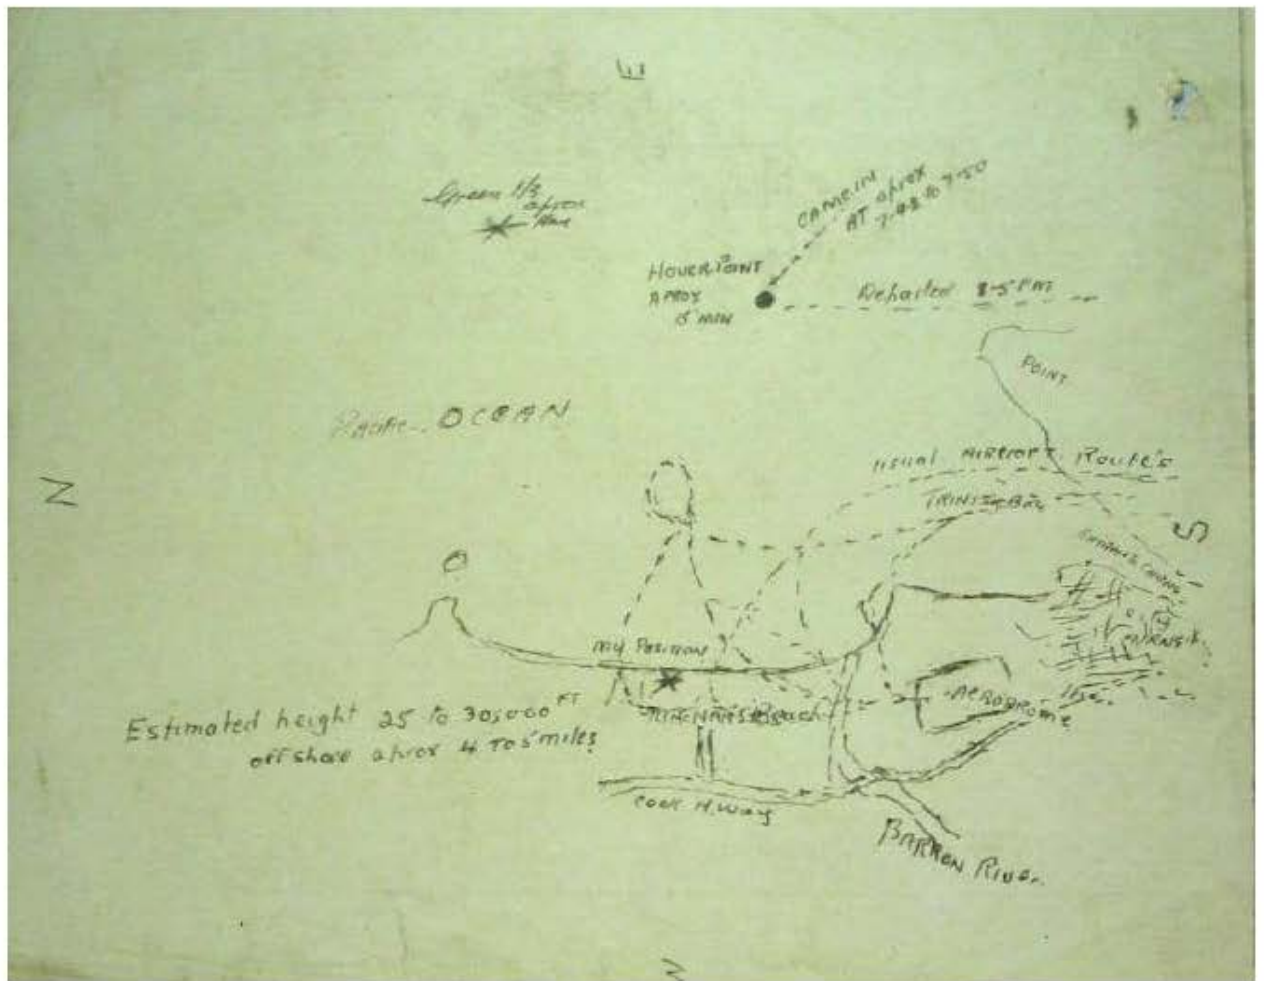 E
Green Is
aprox
Here
CAME IN
AT aprox
7-48 to 7-50
HOVER POINT
APROX
15 MIN
Departed 8-5 PM
POINT
Pacific OCEAN
usual AIRCRAFT Route's
TRINITY Bay
N
S
My Position
CAIRNS
Beach
AERODROME
Estimated height 25 to 30,000 FT
off shore aprox 4 to 5 miles
Cook H.Way
BARRON River